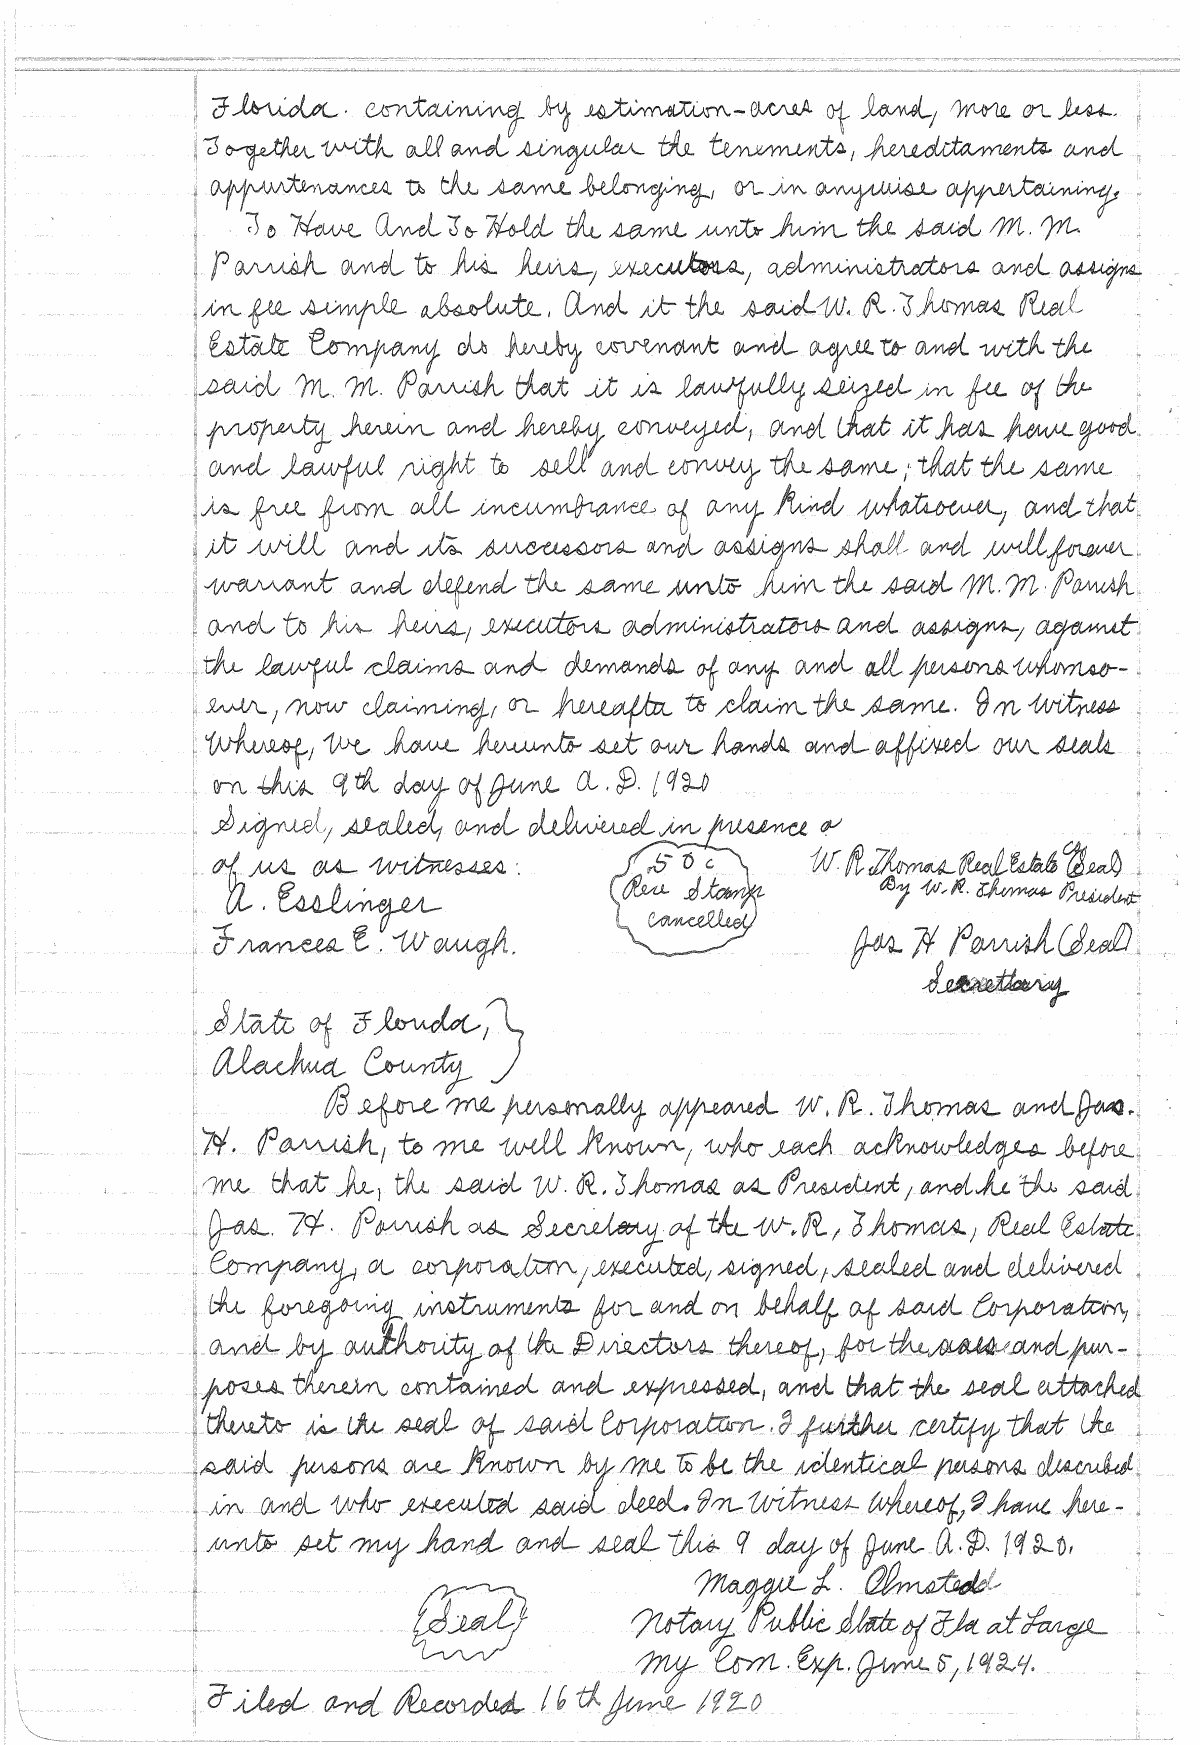 Florida. containing by estimation-acres of land, more or less.
Together with all and singular the tenements, hereditaments and
appurtenances to the same belonging, or in anywise appertaining.
To Have And To Hold the same unto him the said M. M.
Parrish and to his heirs, executors, administrators and assigns
in fee simple absolute. And it the said W. R. Thomas Real
Estate Company do hereby covenant and agree to and with the
said M. M. Parrish that it is lawfully seized in fee of the
property herein and hereby conveyed, and that it has have good
and lawful right to sell and convey the same; that the same
is free from all incumbrance of any kind whatsoever, and that
it will and its successors and assigns shall and will forever
warrant and defend the same unto him the said M. M. Parrish
and to his heirs, executors administrators and assigns, against
the lawful claims and demands of any and all persons whomso-
ever, now claiming, or hereafter to claim the same. In Witness
Whereof, we have hereunto set our hands and affixed our seals
on this 9th day of June A. D. 1920
Signed, sealed, and delivered in presence o
of us as witnesses:
A. Esslinger
Frances E. Waugh.
.50c
Rev Stamp
cancelled
W. R. Thomas Real Estate Co (Seal)
By W. R. Thomas President
Jas H Parrish (Seal)
Secretary
State of Florida,
Alachua County
Before me personally appeared W. R. Thomas and Jas.
H. Parrish, to me well known, who each acknowledges before
me that he, the said W. R. Thomas as President, and he the said
Jas. H. Parrish as Secretary of the W. R, Thomas, Real Estate
Company, a corporation, executed, signed, sealed and delivered
the foregoing instruments for and on behalf of said Corporation,
and by authority of the Directors thereof, for the uses and pur-
poses therein contained and expressed, and that the seal attached
thereto is the seal of said Corporation. I further certify that the
said persons are known by me to be the identical persons described
in and who executed said deed. In Witness Whereof, I have here-
unto set my hand and seal this 9 day of June A. D. 1920.
Maggie L. Olmstead
(Seal)
Notary Public State of Fla at Large
My Com. Exp. June 5, 1924.
Filed and Recorded 16th June 1920